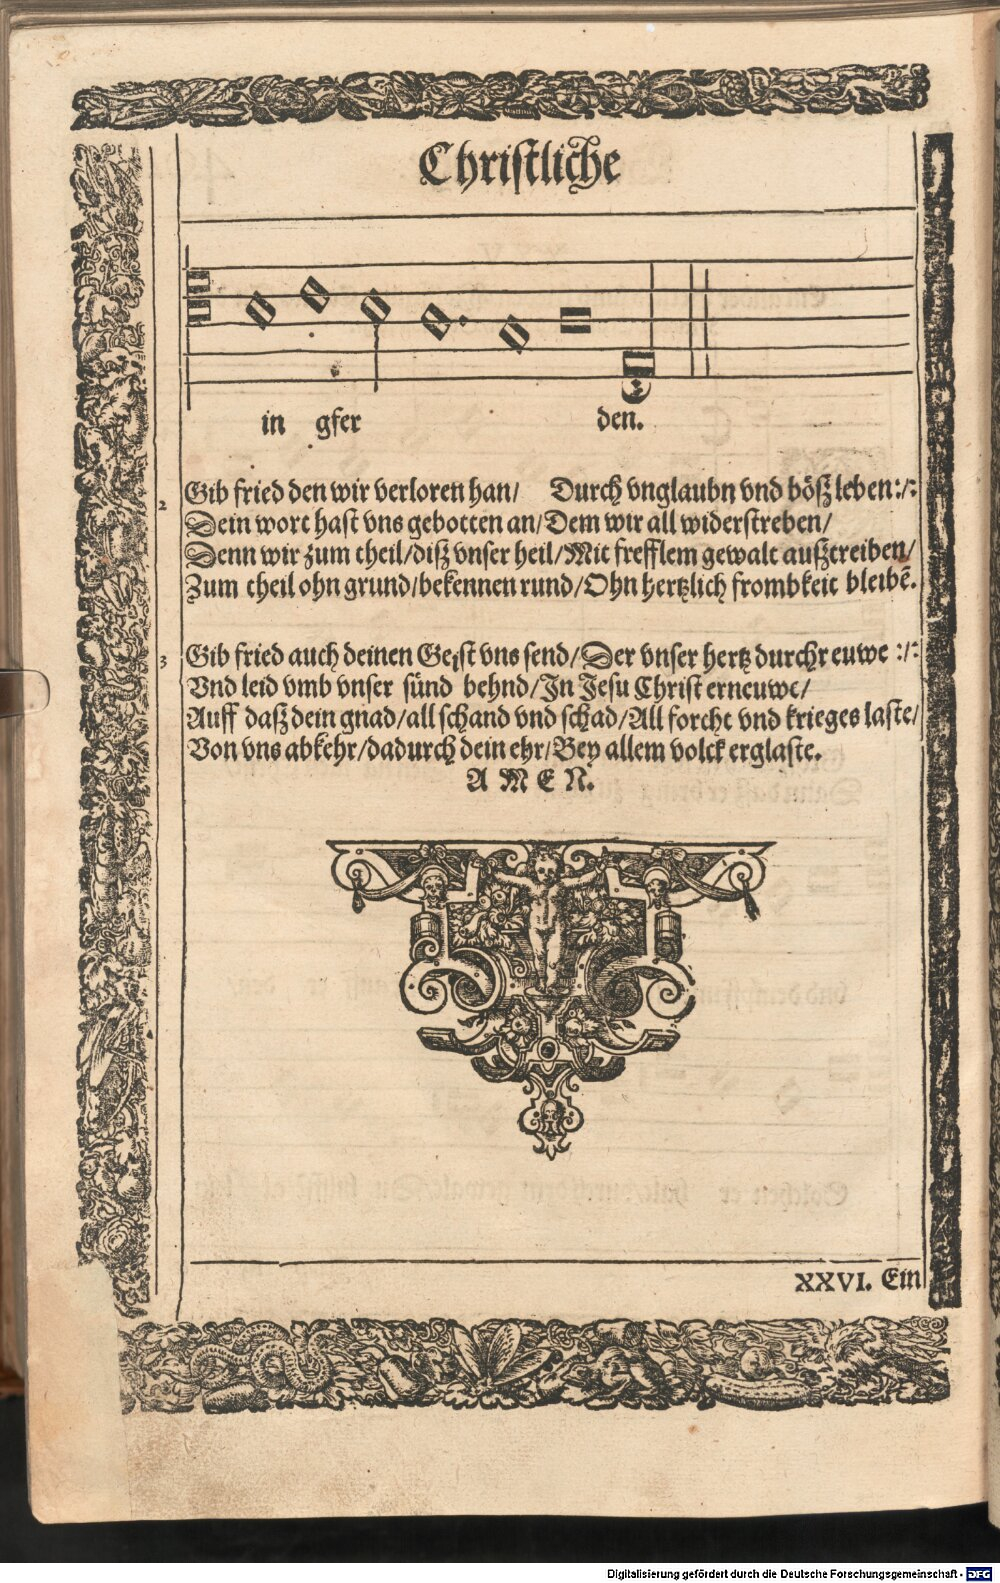 Christliche
in gfer den.
2 Gib fried den wir verloren han/ Durch vnglaubn vnd böß leben:/:
Dein wort hast vns gebotten an/Dem wir all widerstreben/
Denn wir zum theil/diß vnser heil/Mit frefflem gewalt außtreiben/
Zum theil ohn grund/bekennen rund/Ohn hertzlich frombkeit bleibẽ.
3 Gib fried auch deinen Geist vns send/Der vnser hertz durchreuwe :/:
Vnd leid vmb vnser sünd behnd/In Jesu Christ erneuwe/
Auff daß dein gnad/all schand vnd schad/All forcht vnd krieges laste/
Von vns abkehr/dadurch dein ehr/Bey allem volck erglaste.
A M E N.
XXVI. Ein
Digitalisierung gefördert durch die Deutsche Forschungsgemeinschaft - DFG